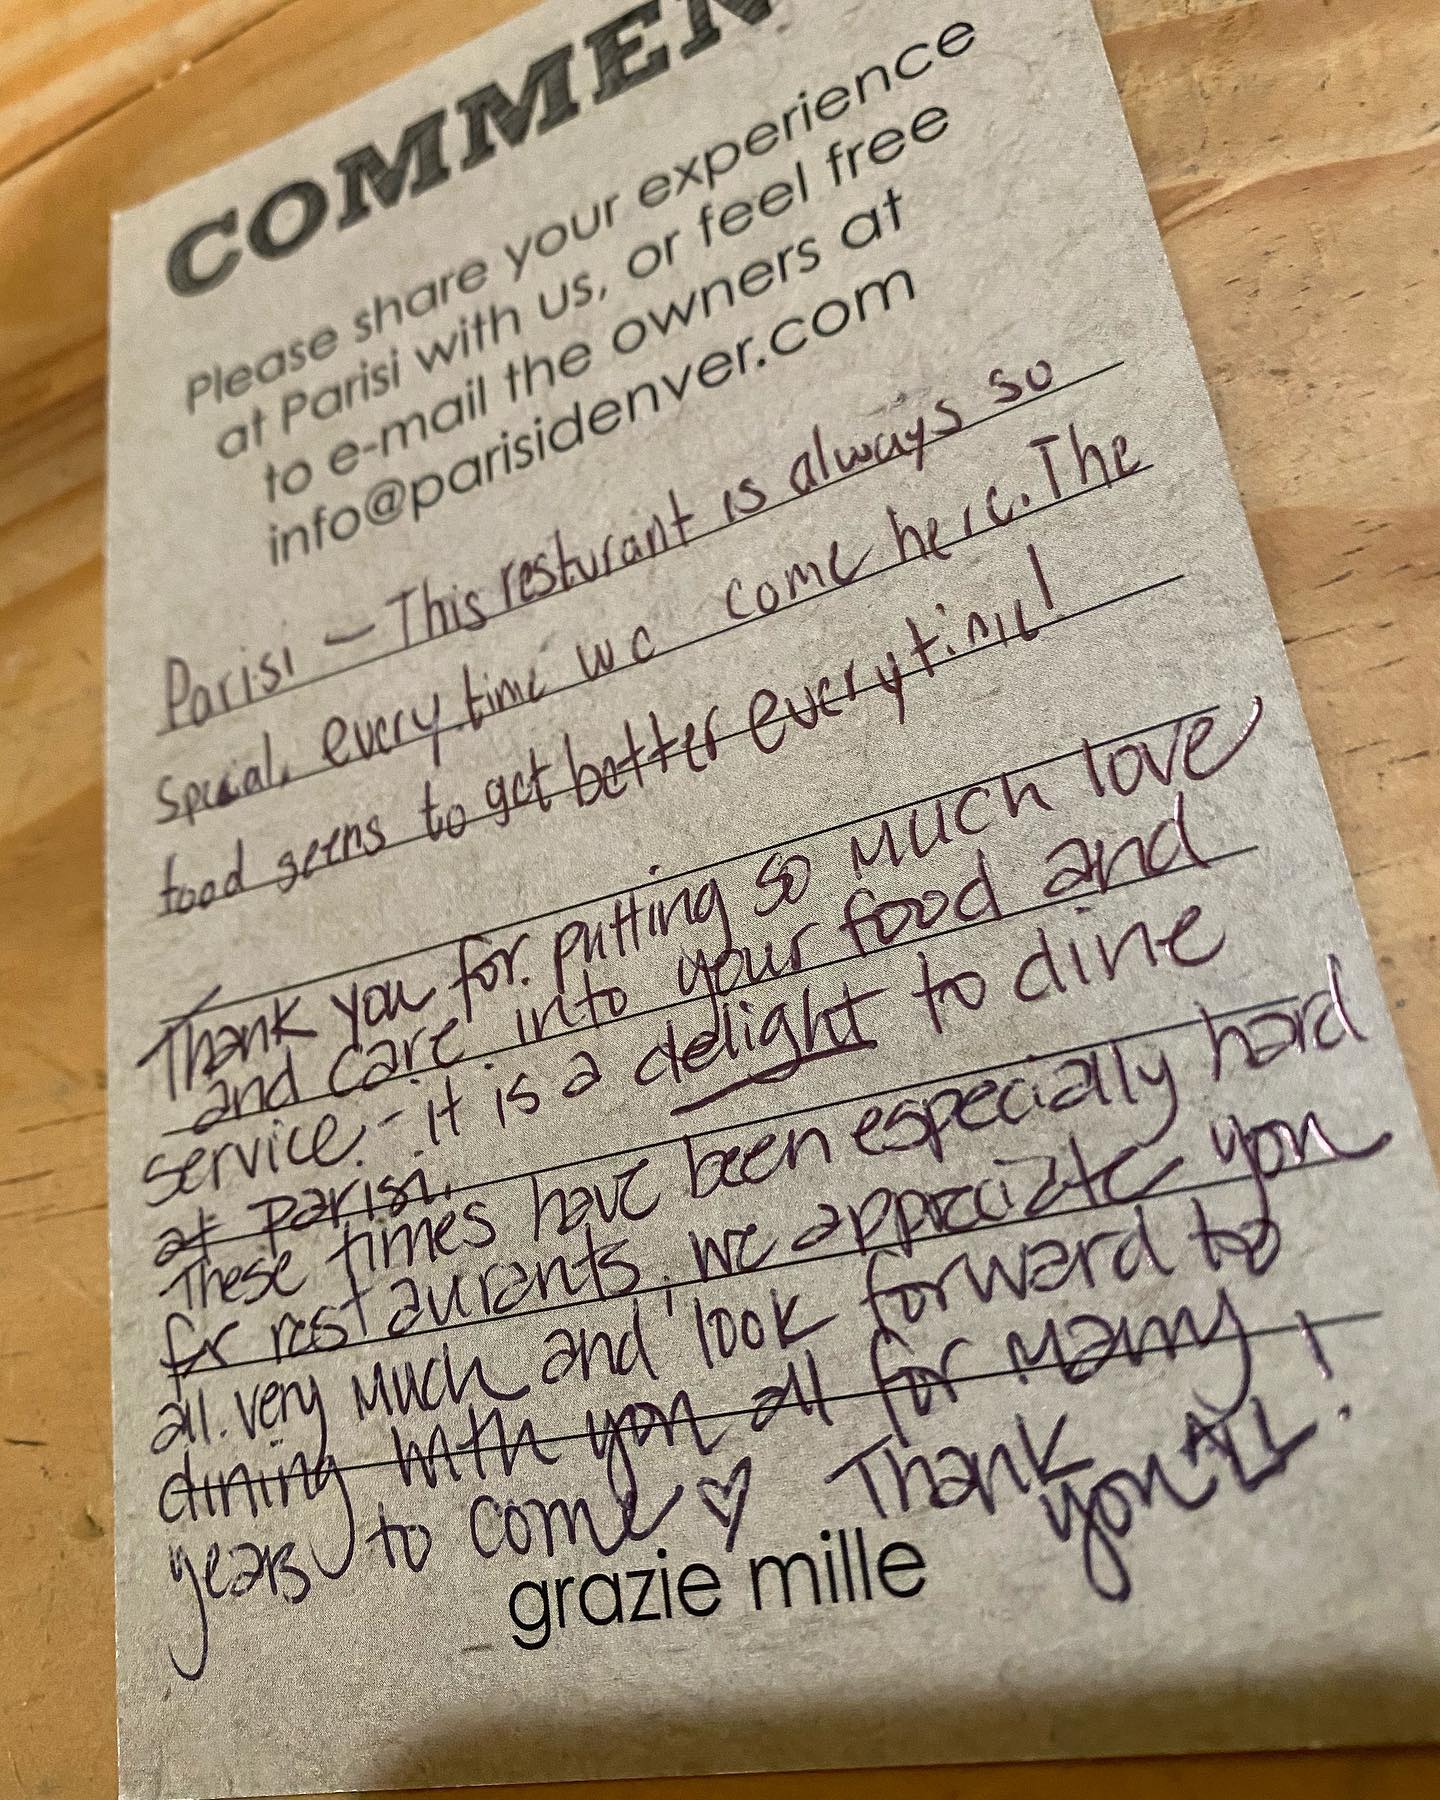 COMMEN
Please share your experience
at Parisi with us, or feel free
to e-mail the owners at
info@parisidenver.com
Parisi - This resturant is always so
special. every time we come here. The
food seems to get better everytime!
Thank you for putting so much love
and care into your food and
service - it is a delight to dine
at Parisi.
These times have been especially hard
for restaurants. we appreciate you
all very much and look forward to
dining with you all for many
years to come ♡ Thank
you ALL!
grazie mille